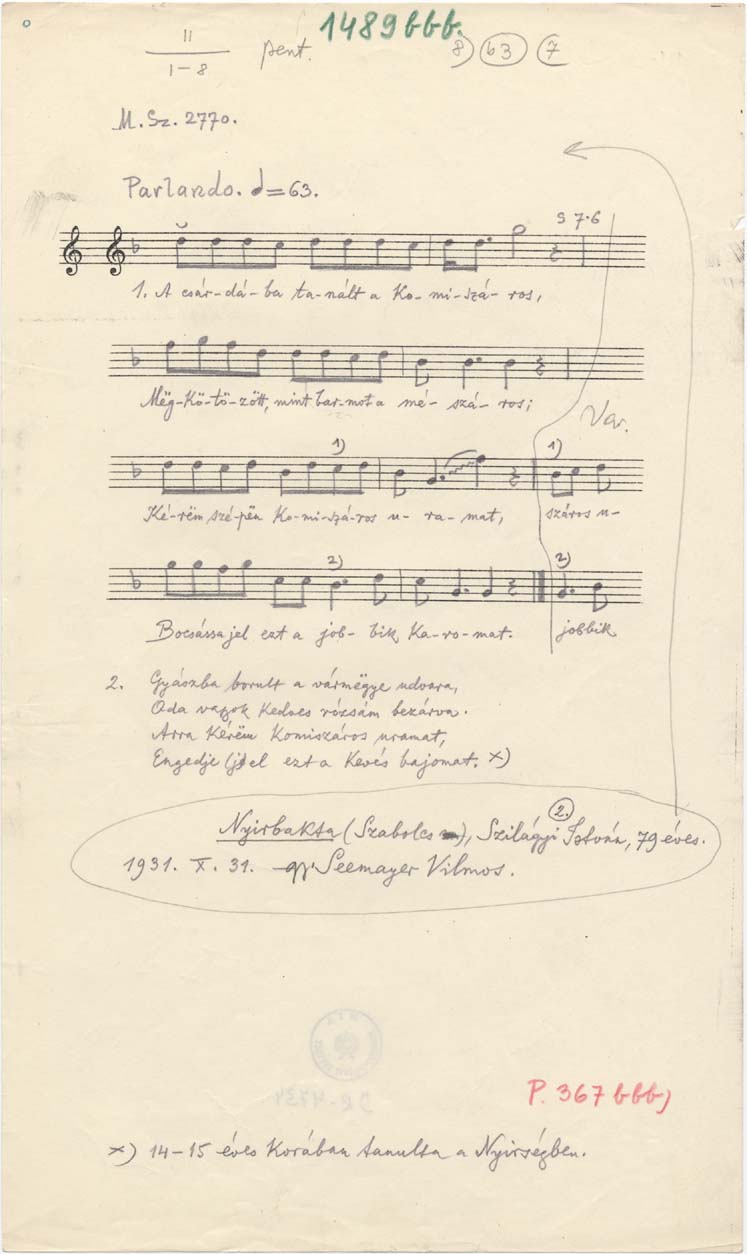 1489 bbb.
II
1–8
pent.
8) 63 7
M. Sz. 2770.
Parlando. 𝅗𝅥=63.
9 7·6
1. A csár-dá-ba ta-nált a Ko-mi-szá-ros,
Mëg-Kö-tö-zött, mint bar-mot a mé-szá-ros;
Var.
1) 1)
Ké-rëm szé-pën Ko-mi-szá-ros u-ra-mat, száros u-
2) 2)
Bocsássa jel ezt a job-bik Ka-ro-mat. jobbik
2. Gyászba borult a vármëgye udvara,
Oda vagok Kedves rózsám bezárva.
Arra Kérëm Komiszáros uramat,
Engedje (j)el ezt a Kevés bajomat. x)
2.
Nyirbakta (Szabolcs), Szilágyi István, 79 éves.
1931. X. 31. gy. Seemayer Vilmos.
P. 367 bbb)
x) 14–15 éves Korában tanulta a Nyirségben.